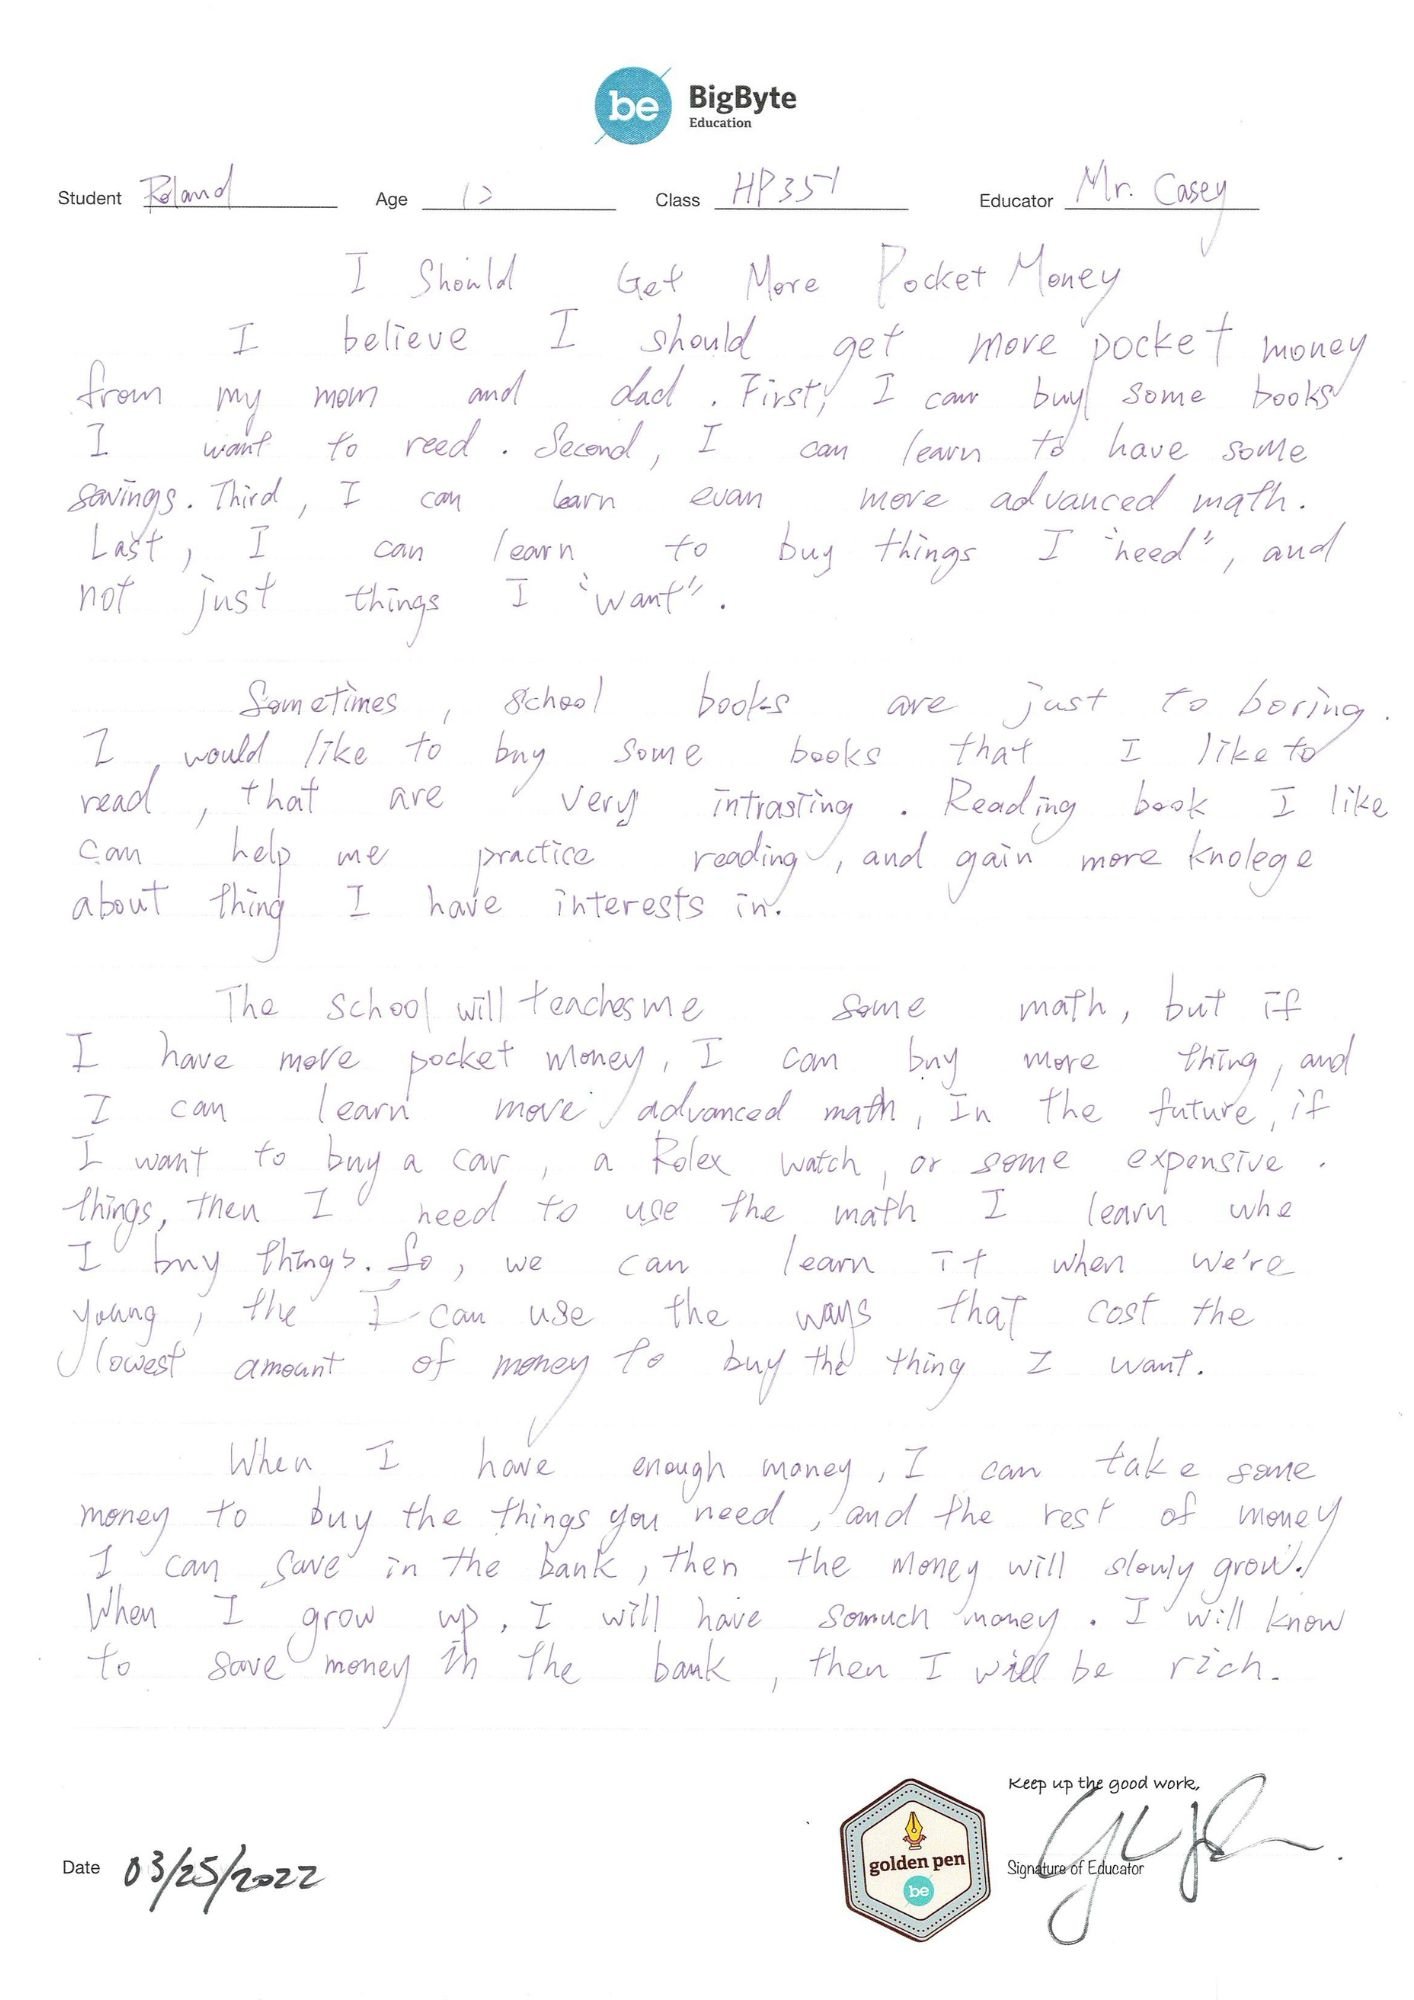 be BigByte
Education
Student Roland Age 12 Class HP351 Educator Mr. Casey
I Should Get More Pocket Money
I believe I should get more pocket money
from my mom and dad. First, I can buy some books
I want to reed. Second, I can learn to have some
savings. Third, I can learn evan more advanced math.
Last, I can learn to buy things I "need", and
not just things I "want".
Sometimes, school books are just to boring.
I would like to buy some books that I like to
read, that are very intrasting. Reading book I like
can help me practice reading, and gain more knolege
about thing I have interests in.
The school will teaches me some math, but if
I have more pocket money, I can buy more thing, and
I can learn more advanced math, In the future, if
I want to buy a car, a Rolex watch, or some expensive.
things, then I need to use the math I learn whe
I buy things. So, we can learn it when we're
young, the I can use the ways that cost the
lowest amount of money to buy the thing I want.
When I have enough money, I can take some
money to buy the things you need, and the rest of money
I can save in the bank, then the money will slowly grow.
When I grow up, I will have somuch money. I will know
to save money in the bank, then I will be rich.
Keep up the good work,
golden pen
be
Signature of Educator
Date 03/25/2022